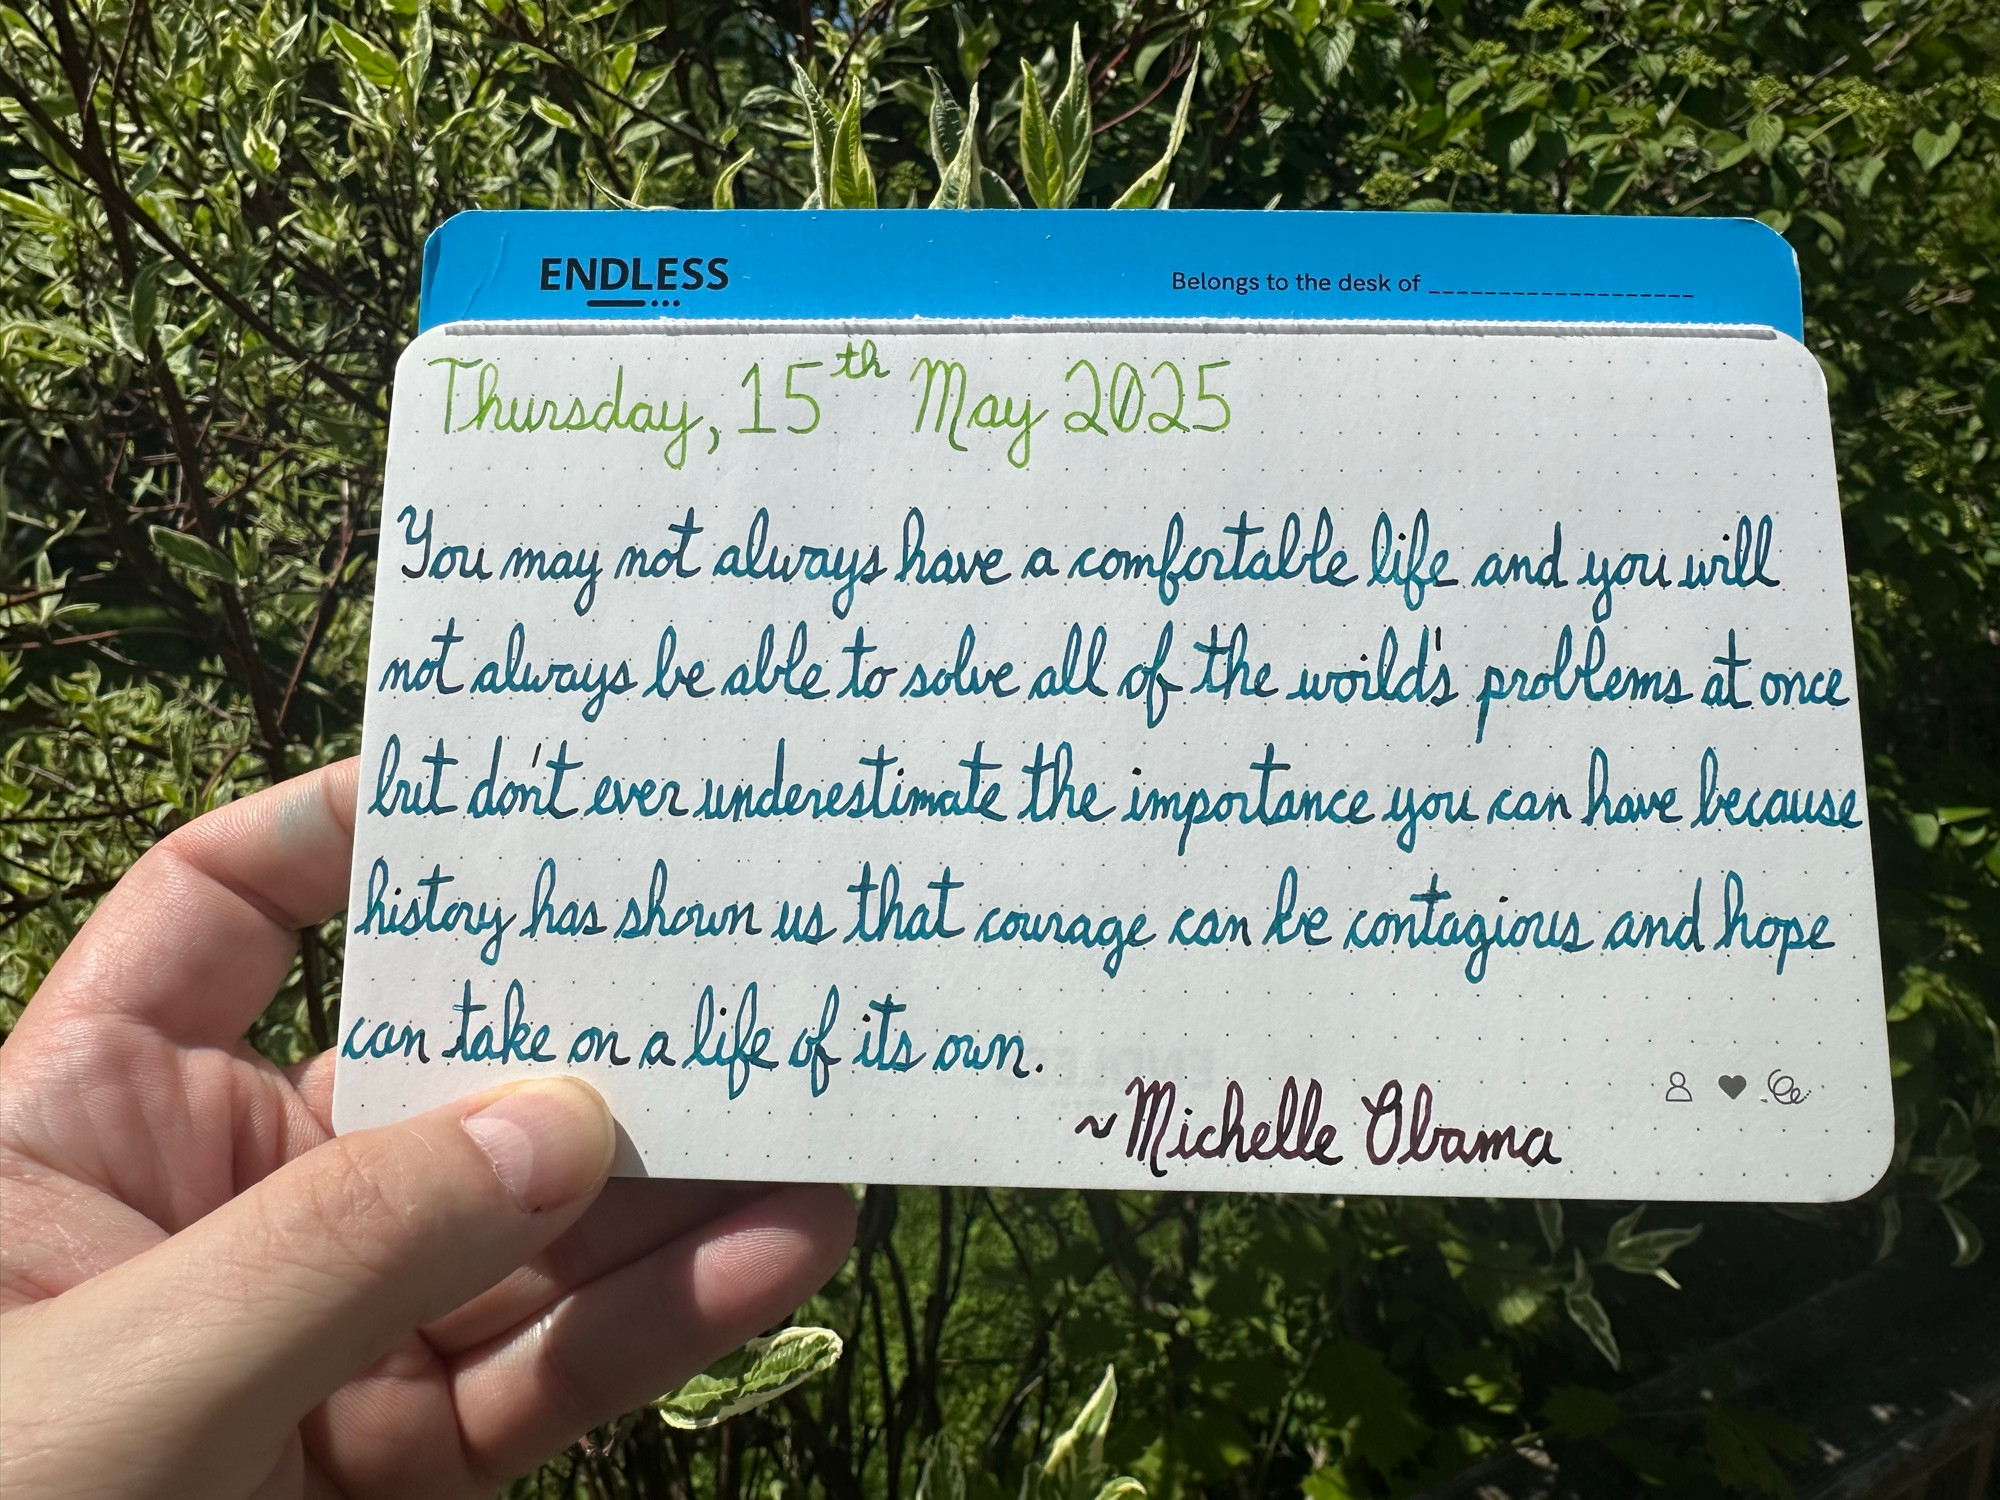 ENDLESS
Belongs to the desk of ____________________
Thursday, 15th May 2025
You may not always have a comfortable life and you will
not always be able to solve all of the world's problems at once
but don't ever underestimate the importance you can have because
history has shown us that courage can be contagious and hope
can take on a life of its own.
~Michelle Obama